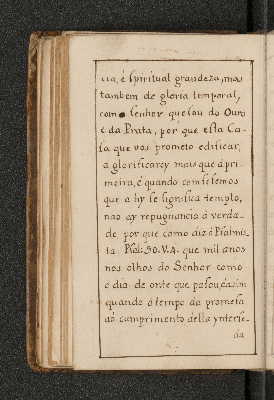 cia, é spiritual grandeza, mas
tambem de gloria temporal,
como senhor que sou do Ouro
e da Prata, por que esta Ca-
sa que vos prometo edificar,
a glorificarey mais que á pri-
meira, é quando concedemos
que a hy se significa templo,
não ay repugnancia á verda-
de, por que como diz ó Psalmis-
ta. Psal. 90. V. 4. que mil anos
nos olhos do Senhor como
o dia de onte que pasou, asim
quando ó tempo da promesa
aó comprimento della ynterse-
da